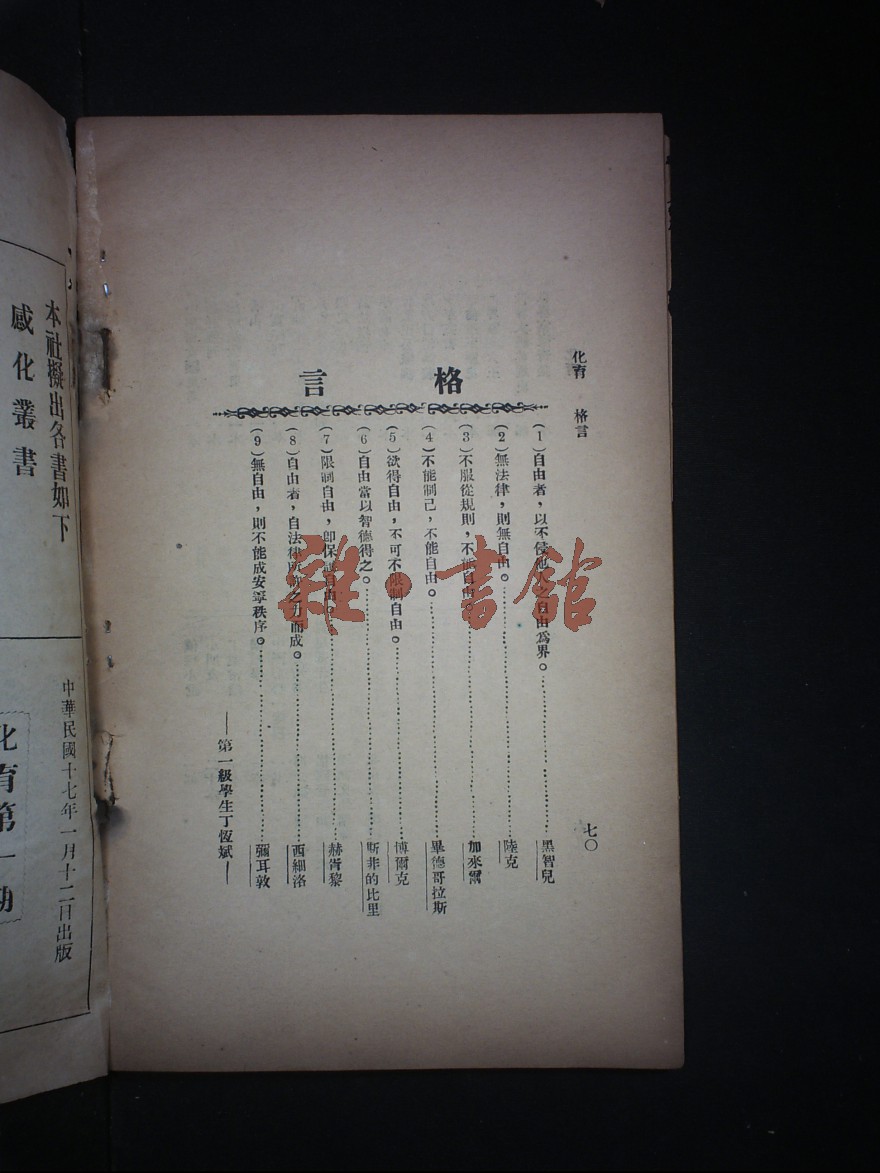 化育　格言
七〇
格言
(1)自由者，以不侵他人之自由爲界。…………黑智兒
(2)無法律，則無自由。…………陸克
(3)不服從規則，不能自由。…………加來爾
(4)不能制己，不能自由。…………畢德哥拉斯
(5)欲得自由，不可不限制自由。…………博爾克
(6)自由當以智德得之。…………斯菲的比里
(7)限制自由，卽保護自由。…………赫胥黎
(8)自由者，自法律之力而成。…………西細洛
(9)無自由，則不能成安寧秩序。…………彌耳敦
——第一級學生丁恆斌——
雜·書館
本社擬出各書如下
感化叢書
中華民國十七年一月十二日出版
化育第一期